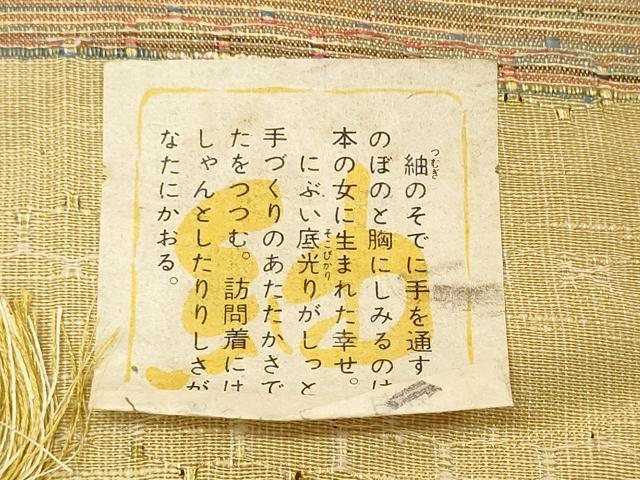 紬のそでに手を通す
のぼのと胸にしみるのは
本の女に生まれた幸せ。
にぶい底光りがしっと
手づくりのあたたかさで
たをつつむ。訪問着には
しゃんとしたりりしさが
なたにかおる。
つむぎ
そこびかり
紬